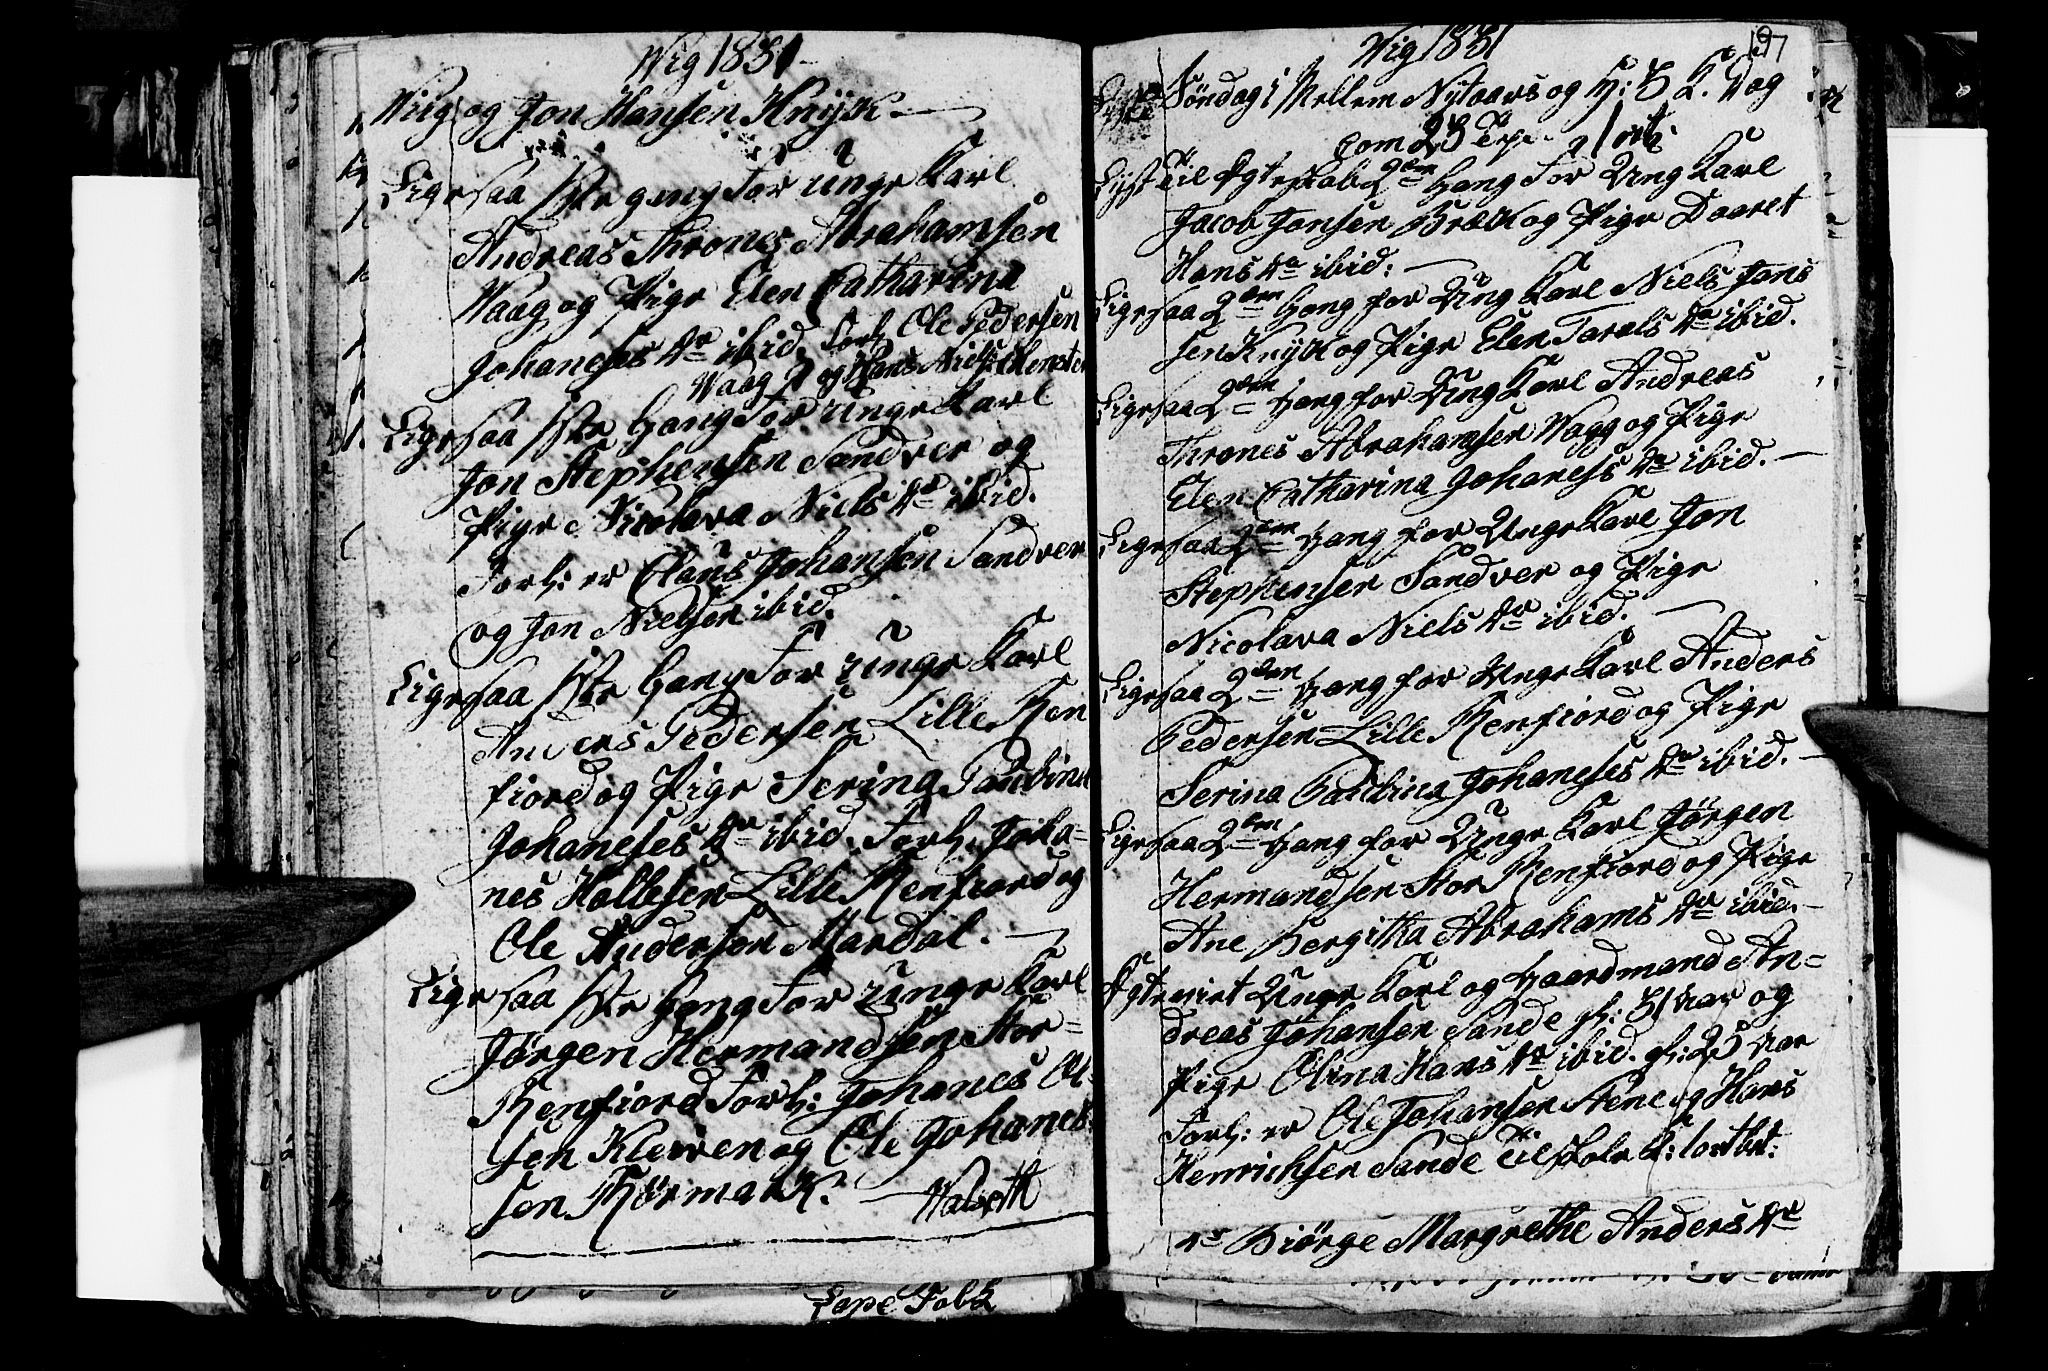 Wig 1831
Wiig og Jon Hansen Knijk
Ligesaa 1ste gang for unge Karl
Andreas Thrones Abrahamsen
Waag og Pige Elen Catharina
Johaneses Dr ibid. Forl: Ole Pedersen
Waag og Hans Niels:
Ligesaa 1ste Gang for unge Karl
Jon Stephensen Sandver og
Pige Nicolava Niels Dr ibid.
Forl: er Claus Johansen Sandver
og Jon Nielsen ibid.
Ligesaa 1ste Gang for unge Karl
Anders Pedersen Lille Ren
fiord og Pige Serina Paulina
Johaneses Dr ibid. Forl. Joha-
nes Hollesen Lille Renfiord og
Ole Andersen Mardal.
Ligesaa 1ste Gang for unge Karl
Jørgen Hermandsen Stor-
Renfiord Forl: Johanes Ol-
sen Kleiven og Ole Johanes
sen
Wig 1831
197
Søndag i Mellem Nytaars og H: 3 K. Dag
com 23
Lyst Til Ægteskab 2den Gang for Ung Karl
Jacob Jonsen Bræk og Pige Daaret
Hans Dr ibid:
Ligesaa 2den Gang for Ung Karl Niels Jons
sen Knijk og Pige Elen Tarals Dr ibid.
Ligesaa 2den Gang for Ung Karl Andreas
Thrones Abrahamsen Wagg og Pige
Elen Catharina Johaness Dr ibid.
Ligesaa 2den Gang for Unge Karl Jon
Stephensen Sandver og Pige
Nicolava Niels Dr ibid.
Ligesaa 2den Gang for Unge Karl Anders
Pedersen Lille Renfiord og Pige
Serina Paulina Johaneses Dr ibid.
Ligesaa 2den Gang for Unge Karl Jørgen
Hermandsen Stor Renfiord og Pige
Ane Bergitha Abrahams Dr ibid.
Ægteviet Unge Karl og Gaardmand An-
dreas Johansen Sande gl: 31 aar og
Pige Olina Hans Dr ibid. gl: 25 aar
Forl: er Ole Johansen Stene og Hans
Henrichsen Sande Til skole K:
Biørge Margrethe Anders Dr